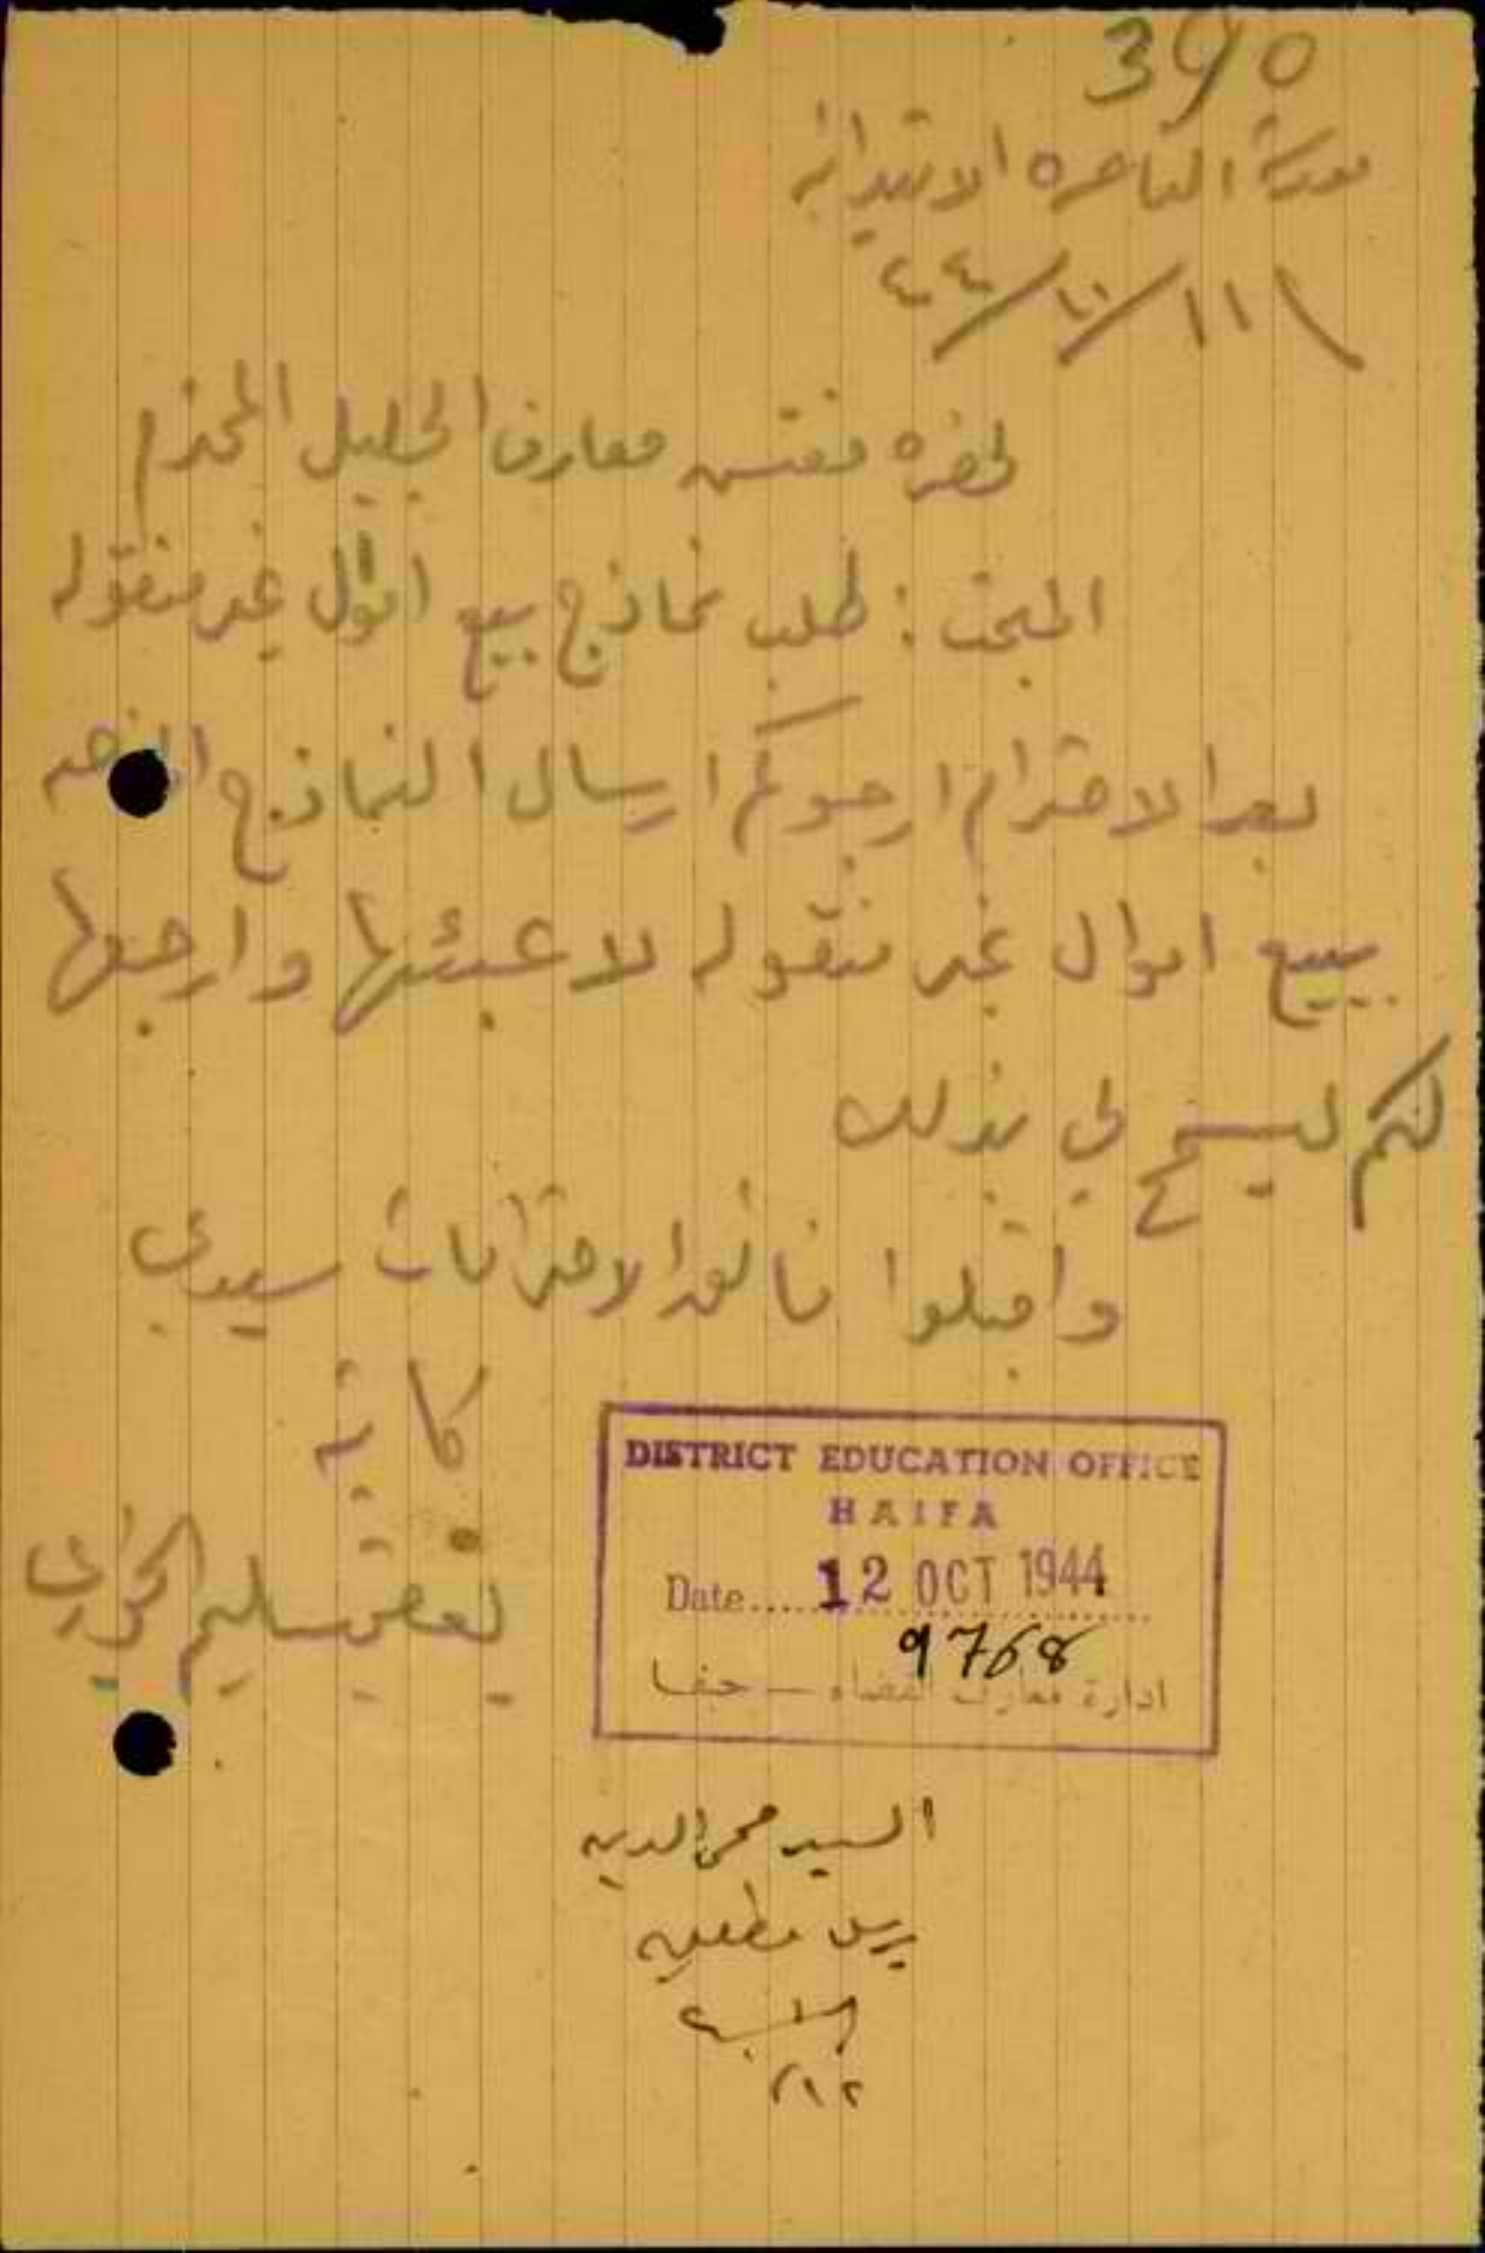 390
مدرسة الناصره الابتدائيه
١١/١٠/٤٤
لحضرة مفتش معارف الجليل المحترم
المبحث : طلب نماذج بيع اموال غير منقوله
بعد الاحترام ارجوكم ارسال النماذج
ببيع اموال غير منقوله لاعبئها وارجعها
لكم ليسمح لي بذلك
واقبلوا فائق الاحترامات سيدي
كاتبه
يعقوب سليم الخوري
DISTRICT EDUCATION OFFICE
HAIFA
Date..... 12 OCT 1944
9768
ادارة معارف لقضاء – حيفا
السيد محي الدين
يرسل مطلوبه
١٢/